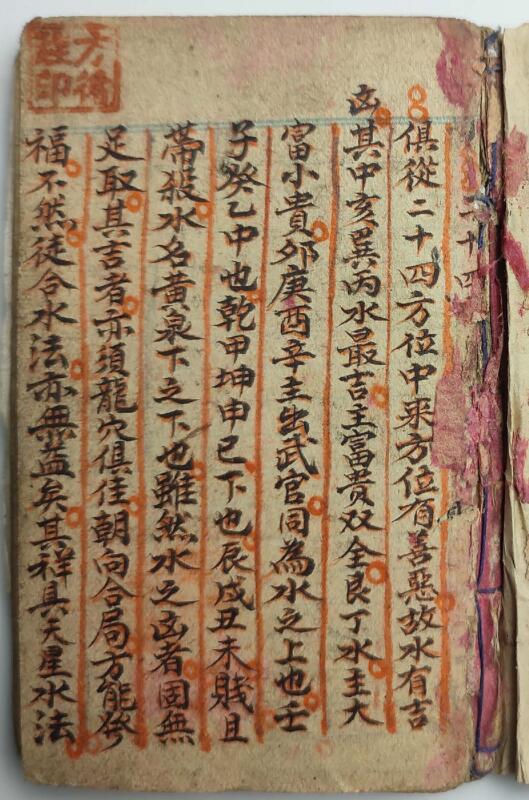 二十四
俱從二十四方位中来方位有善惡故水有吉
凶其中亥巽丙水最吉主富貴双全艮丁水主大
富小貴夘庚酉辛主出武官同為水之上也壬
子癸乙中也乾甲坤申巳下也辰戌丑未賎且
帶殺水名黄泉下之下也雖然水之凶者固無
足取其吉者亦須龍穴俱佳朝向合局方能發
福不然徒合水法亦無益矣其祥具天星水法